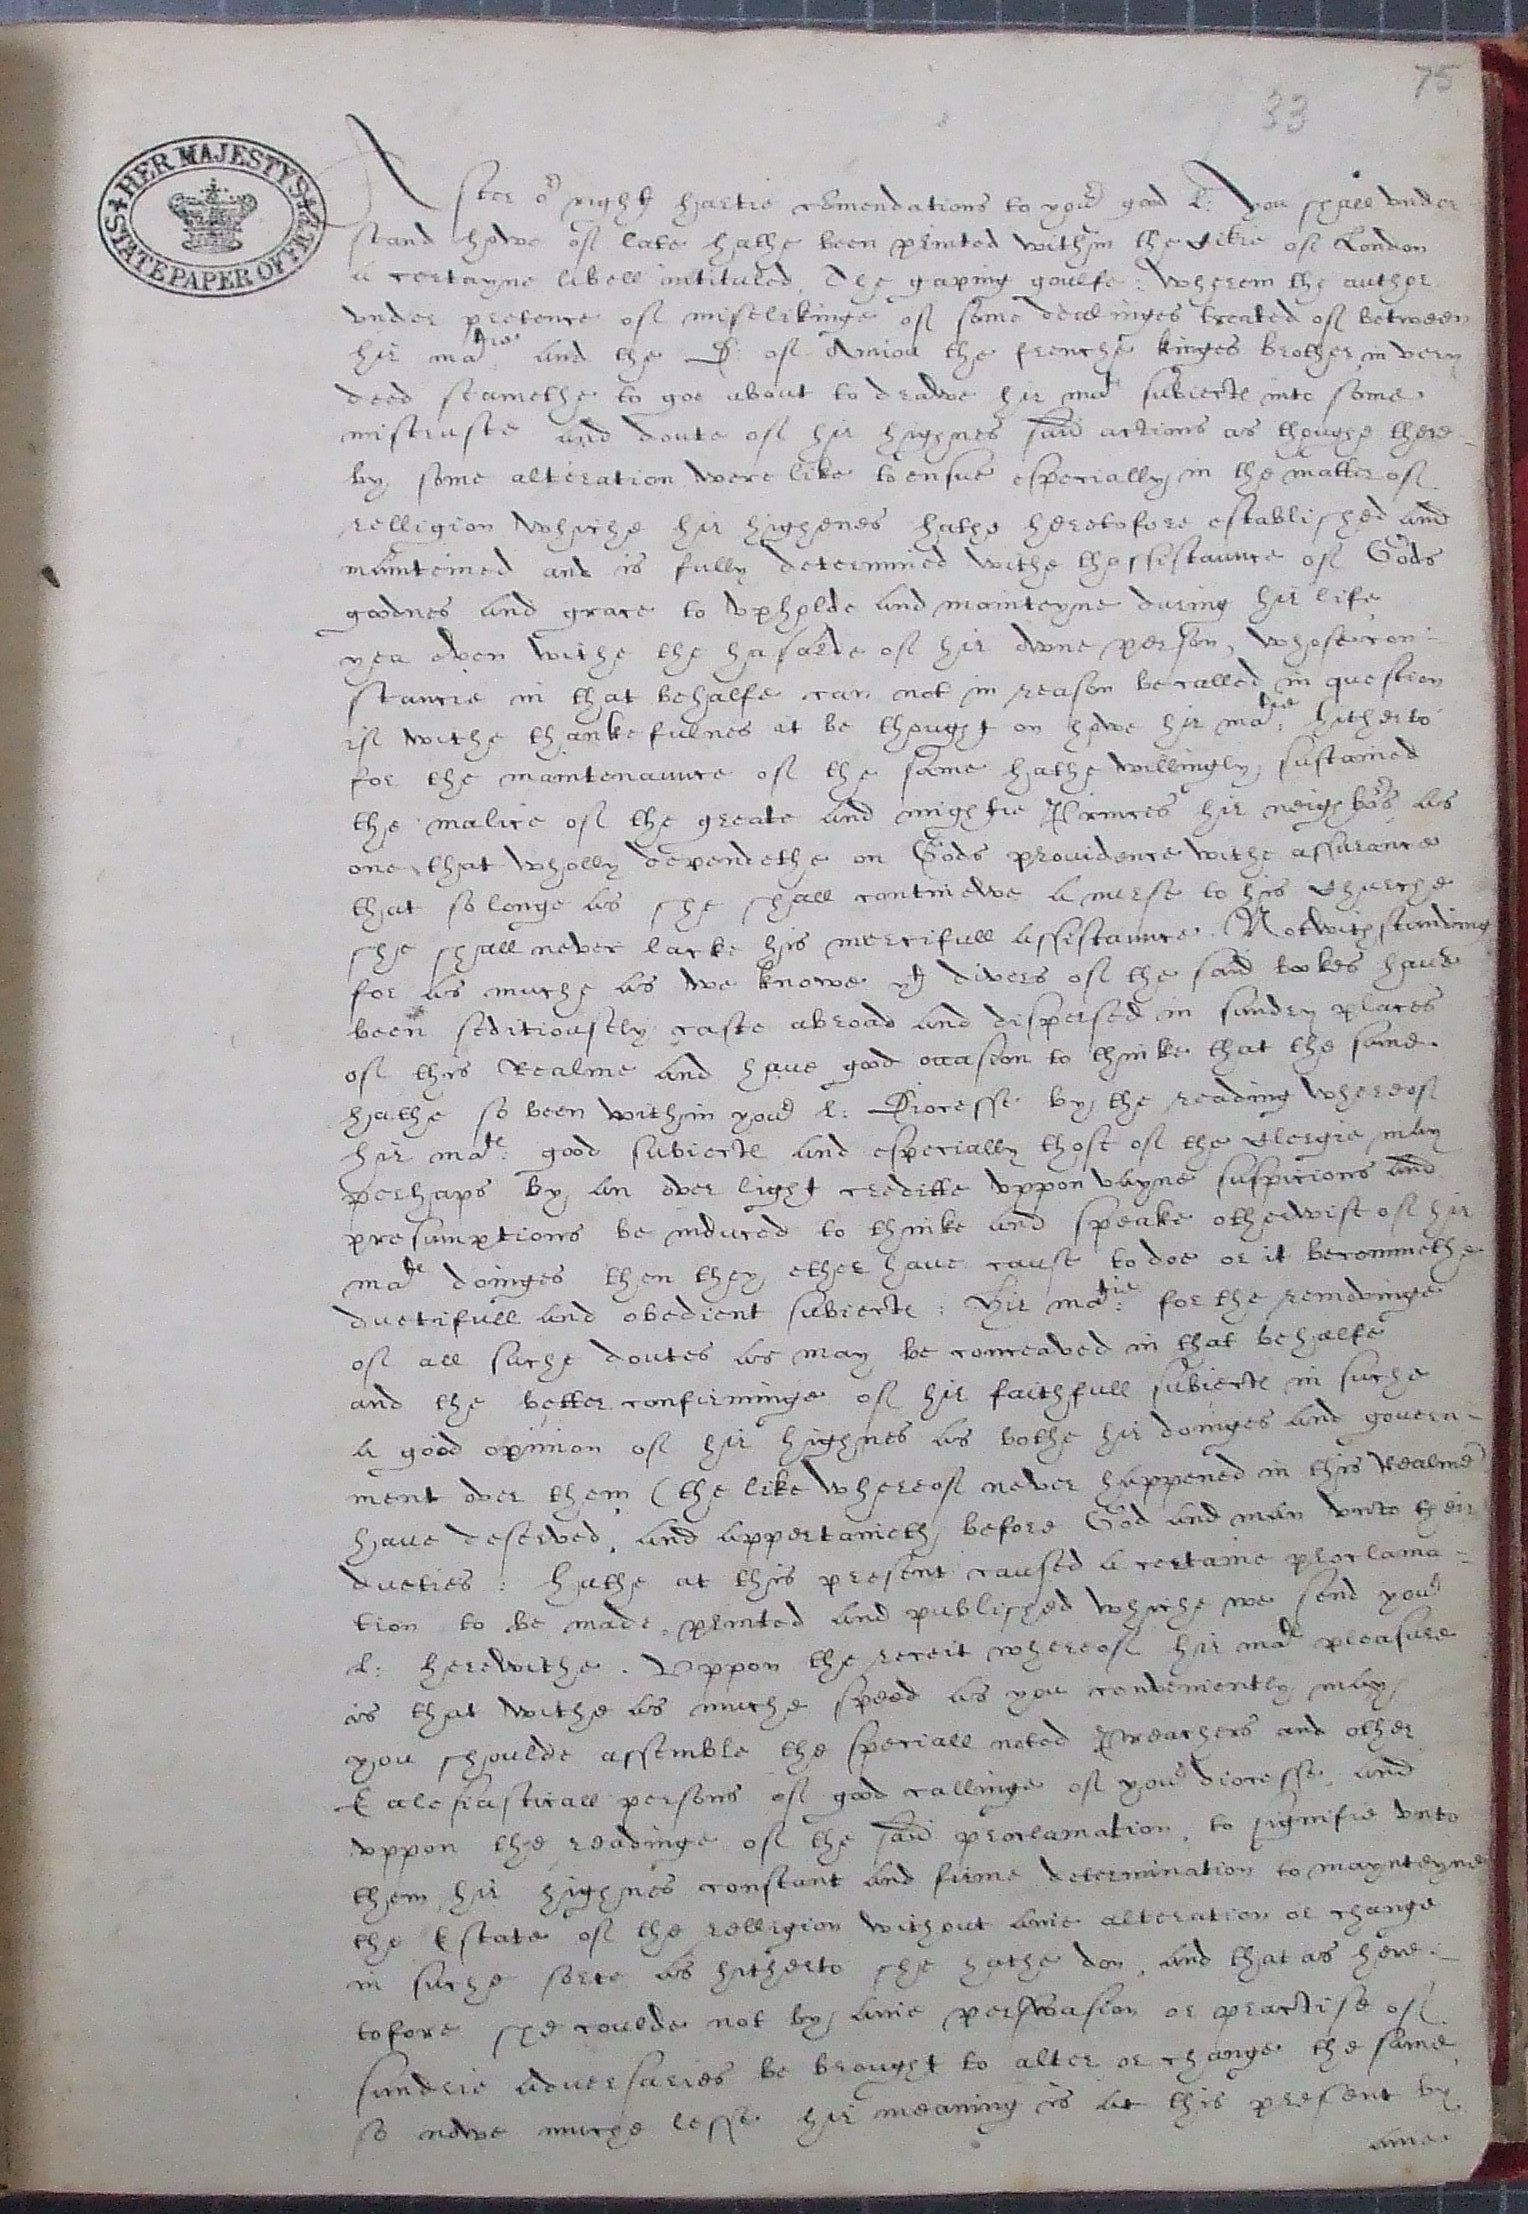 75
33
HER MAJESTY'S
STATE PAPER OFFICE
After or right hartie comendations to your good L: you shall vnder
stand howe of late hathe been printed within the Citie of London
a certayne libell intituled. The gaping goulfe: wherein the author
vnder pretence of mislikinge of some dealinges treated of between
hir matie and the D: of Aniou the frenche kinges brother in very
deed seamethe to goe about to drawe hir mate subiectes into some
mistruste and doute of hir highnes said actions as thoughe there-
by some alteration were like to ensue especially in the matter of
relligion whiche hir highenes hathe heretofore established and
mainteined and is fully determined withe thassistaunce of Gods
goodnes and grace to vpholde and mainteyne during hir life
yea even withe the hasarde of hir owne person, whose con-
stancie in that behalfe can not in reason be called in question
if withe thankefulnes it be thought on howe hir matie: hitherto
for the maintenaunce of the same hathe willingly sustained
the malice of the greate and mightie Princes hir neighbors as
one that wholly dependethe on Gods providence withe assurance
that so longe as she shall continewe a nurse to his Churche
she shall never lacke his mercifull assistaunce. Notwithstanding
for as muche as we knowe yt divers of the said bookes have
been seditiously caste abroad and dispersed in sundry places
of this Realme and have good occasion to thinke that the same
hathe so been within your L: Diocesse by the reading whereof
hir mate: good subiectes and especially those of the Clergie may
perhaps by an over light creditte vppon vayne suspicions and
presumptions be induced to thinke and speake otherwise of hir
mate doinges then they ether have cause to doe or it becommethe
duetifull and obedient subiectes: Hir matie: for the removinge
of all suche doutes as may be conceaved in that behalfe
and the better confirminge of hir faithfull subiectes in suche
a good opinion of hir highnes as bothe hir doinges and govern-
ment over them (the like whereof never happened in this Realme)
have deserved, and appertaineth before God and man vnto their
dueties: hathe at this present caused a certaine proclama-
tion to be made, printed and published whiche we send your
L: herewithe. Vppon the receit whereof hir mate pleasure
is that withe as muche speed as you conveniently may
you shoulde assemble the speciall noted Preachers and other
Ecclesiasticall persons of good callinge of your diocesse, and
vppon the readinge of the said proclamation, to signifie vnto
them hir highnes constant and firme determination to maynteyne
the Estate of the relligion without anie alteration or change
in suche sorte as hitherto she hathe don, and that as here-
tofore she coulde not by anie perswasion or practise of
sundrie adversaries be brought to alter or change the same
so nowe muche lesse hir meaning is at this present by
anie